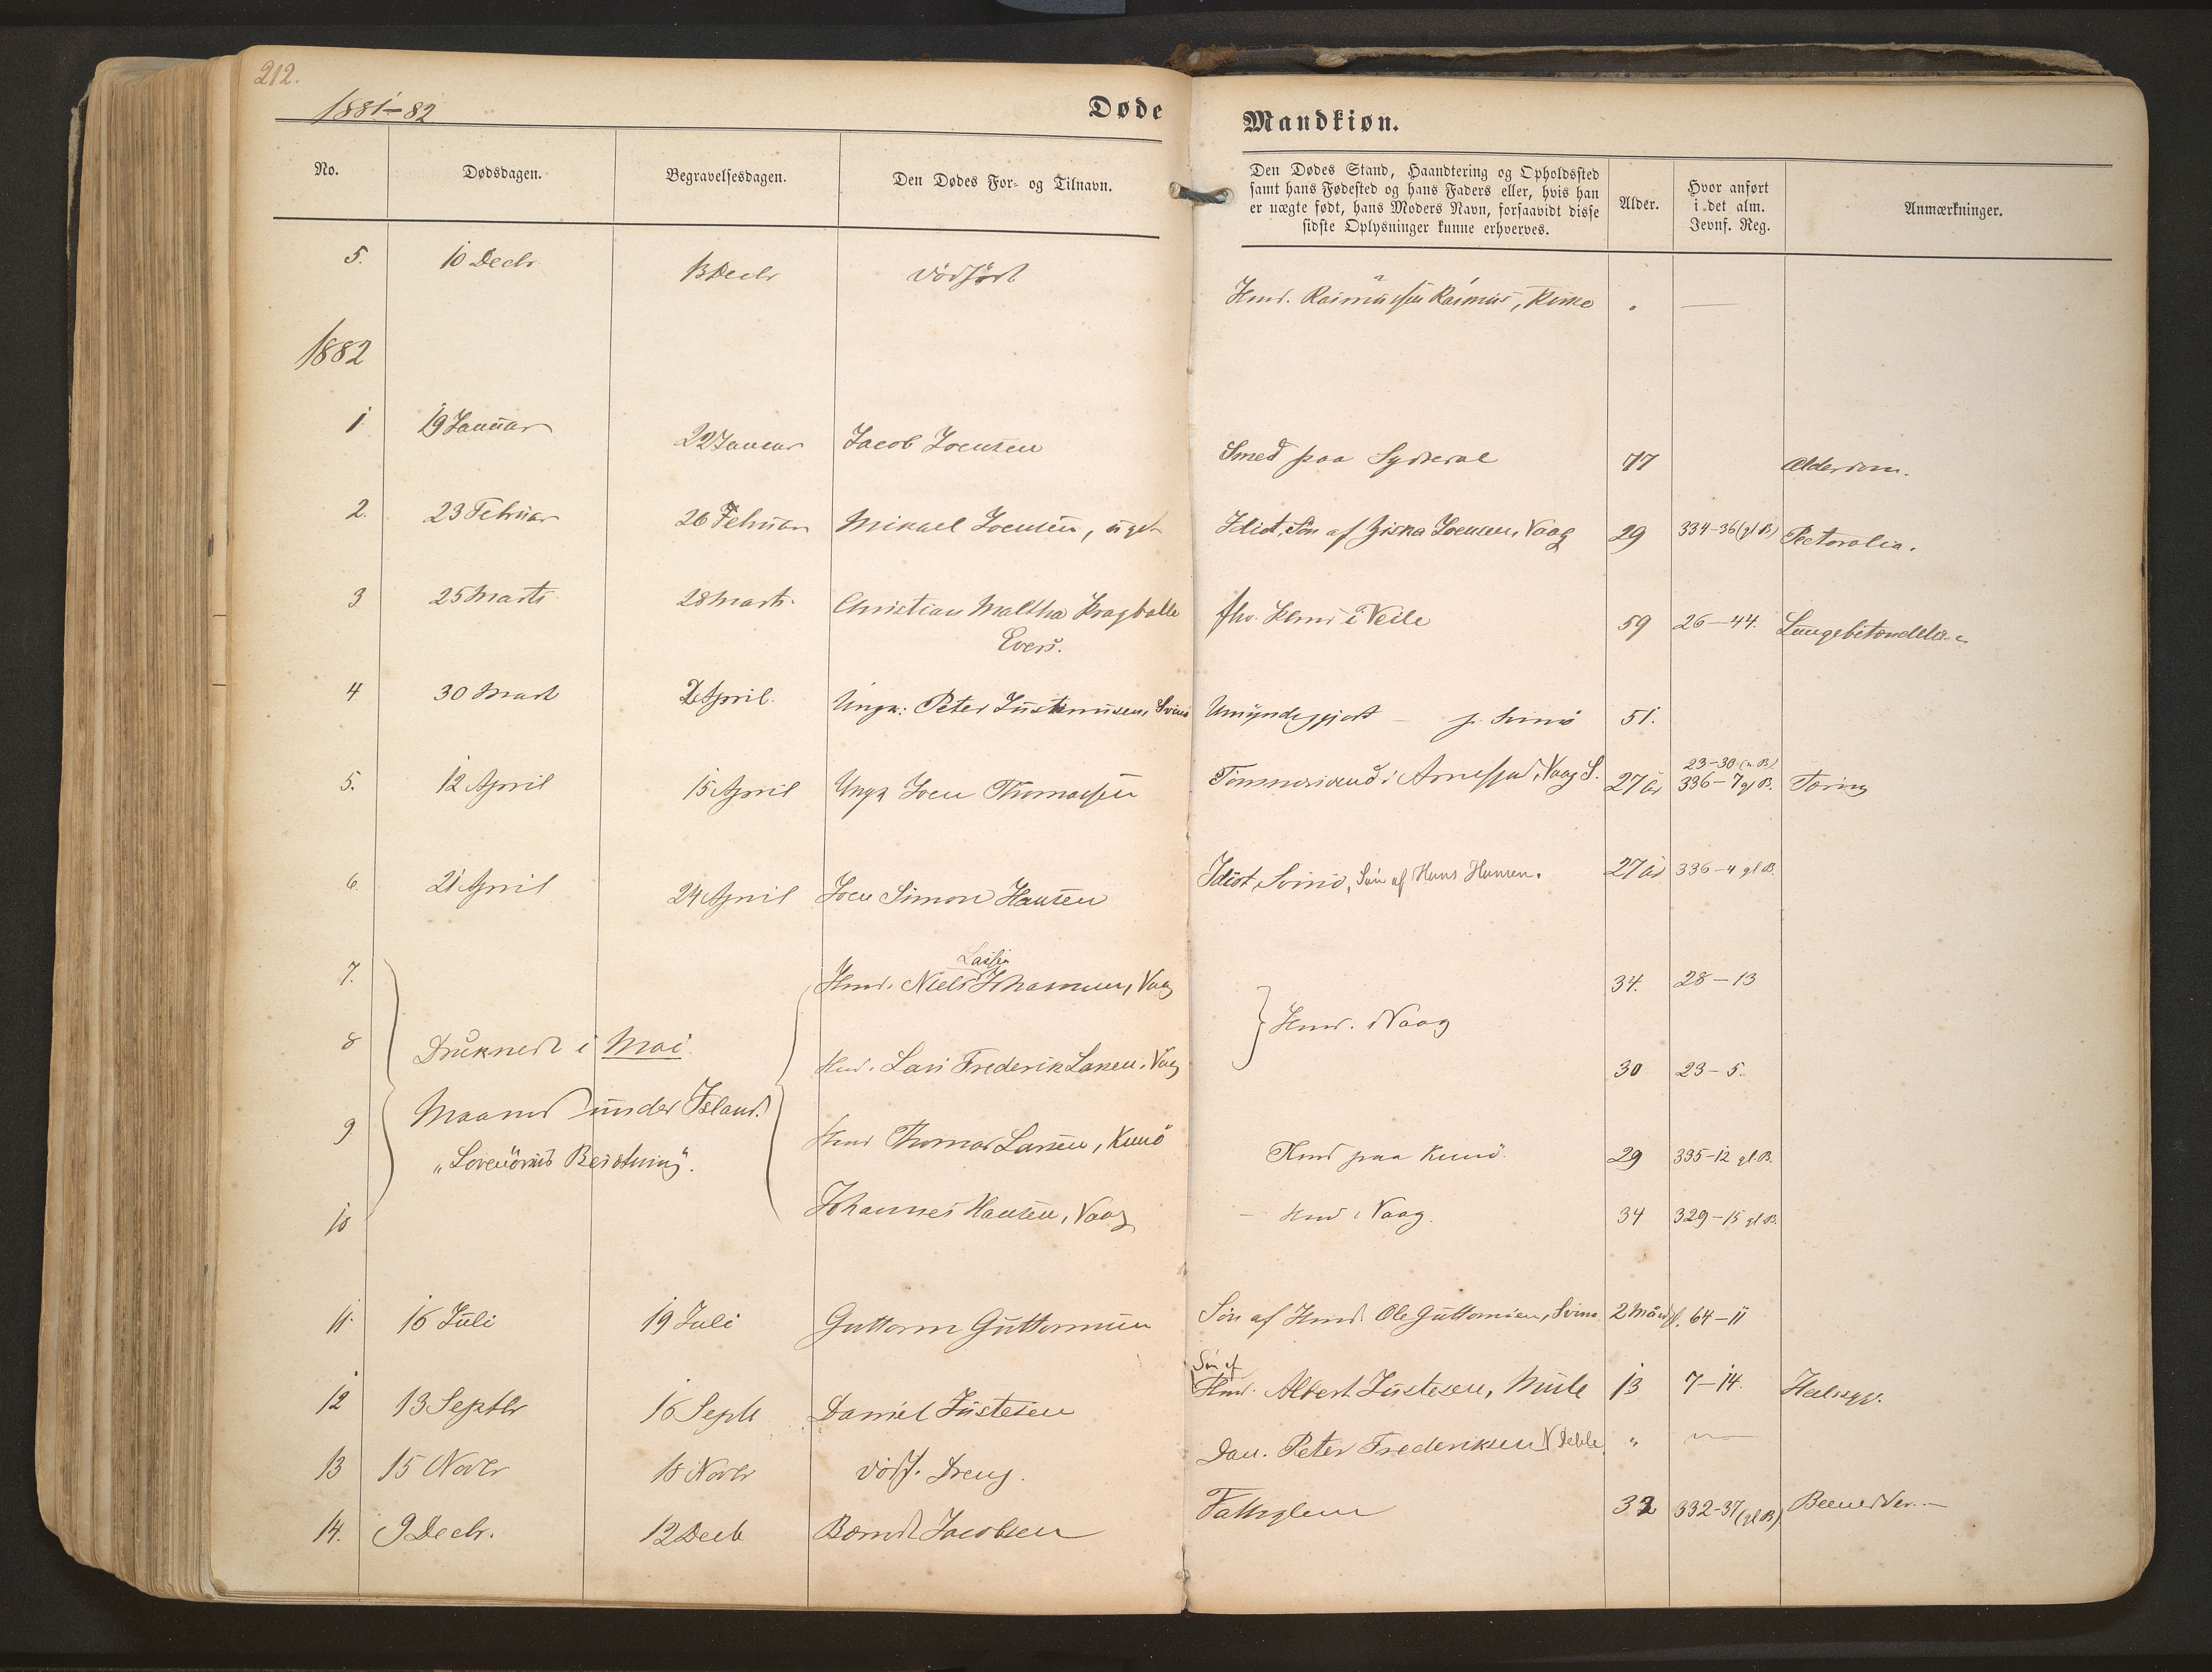 212.
1881-82
Døde
Mandkiøn.
No.
Dødsdagen.
Begravelsesdagen.
Den Dødes For- og Tilnavn.
Den Dødes Stand, Haandtering og Opholdssted
samt hans Fødested og hans Faders eller, hvis han
er uægte født, hans Moders Navn, forsaavidt disse
sidste Oplysninger kunne erhverves.
Alder.
Hvor anført
i det alm.
Jevnf. Reg.
Anmærkninger.
5. 10 Decbr 13 Decbr dödfört Kmd. Rasmus, —
1882
1 19 Januar 22 Januar Jacob Joensen Smed paa 77 Alderdom.
2. 23 Februar 26 Februar Mikael Joensen, ugt Idiot, Sön af Ziska Joensen, Vaag 29 334-36 (gl B.) Pectoralia.
3 25 Marts 28 Marts Christian Malthe Kragballe fhv. i Veile 59 26-44. Lungebetændelse
Evers.
4 30 Mart 2 April. Ungk: Peter Justinussen, Svinö Umyndiggjort — p. Svinö 51.
5. 12 April 15 April Ungk Joen Thomassen Tömmermand i Arnefjord, Vaag S. 27 år 23-30 (n. B.)
336-7 gl B. Tæring
6. 21 April 24 April Joen Simon Hansen Idiot, Svinö, Sön af Hans Hansen. 27 år 336-4 gl B.
7. Kmd. Niels Vaag 34. 28-13
Kmd. i Vaag
8 Druknede i Mai Kmd. Lars Frederik Larsen, Vaag 30 23-5.
Maaned under Island.
9 Kmd Thomas Larsen, Kunö Kmd paa Kunö. 29 335-12 gl. B.
10 Johannes Hansen, Vaag — Kmd i Vaag. 34 329-15 gl B.
11. 16 Juli 19 Juli Guttorm Guttormsen Sön af Kmd. Ole Guttormsen, Svinö 2 Mån 64-11
Sön af
12 13 Septbr 16 Septb Daniel Justesen Kmd. Albert Justesen, Mule 13 7-14. Halssyg.
13 15 Novbr 18 Novbr dödf. Dreng. Dan. Peter Frederiksen, N Deble " —
14. 9 Decbr. 12 Decb Berndt Jacobsen Fattiglem 32 332-37 (gl B)